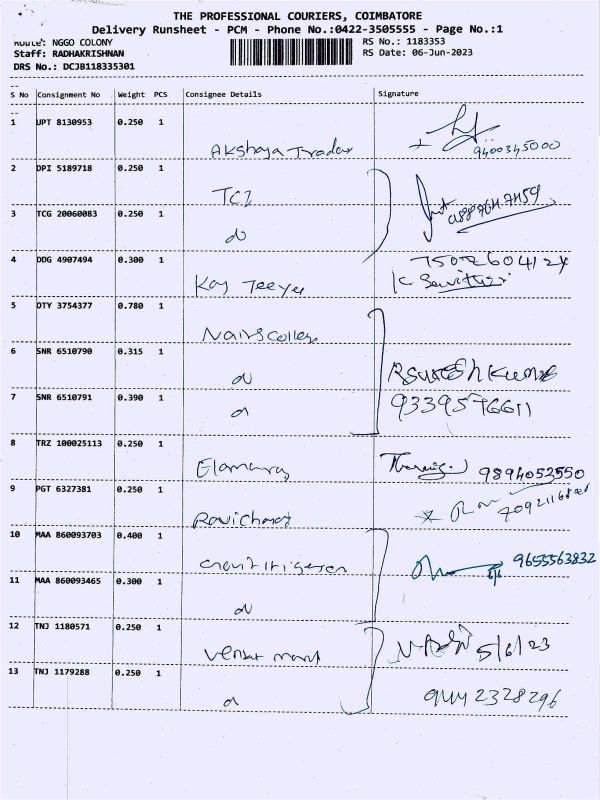 THE PROFESSIONAL COURIERS, COIMBATORE
Delivery Runsheet - PCM - Phone No.:0422-3505555 - Page No.:1
Route: NGGO COLONY
RS No.: 1183353
Staff: RADHAKRISHNAN
RS Date: 06-Jun-2023
DRS No.: DCJB118335301
S No Consignment No Weight PCS Consignee Details Signature
1 UPT 8130953 0.250 1
Akshaya Trader 9400345000
2 DPI 5189718 0.250 1
TCI
3 TCG 20060083 0.250 1
do
4 DDG 4907494 0.300 1 7502604124
Kay Teeyes K Savithri
5 DTY 3754377 0.780 1
6 SNR 6510790 0.315 1
do RSureshKumar
7 SNR 6510791 0.390 1 9339576611
do
8 TRZ 100025113 0.250 1
9894052550
9 PGT 6327381 0.250 1
10 MAA 860093703 0.400 1
9655563832
11 MAA 860093465 0.300 1
do
12 TNJ 1180571 0.250 1
5/6/23
13 TNJ 1179288 0.250 1
do 9442328296